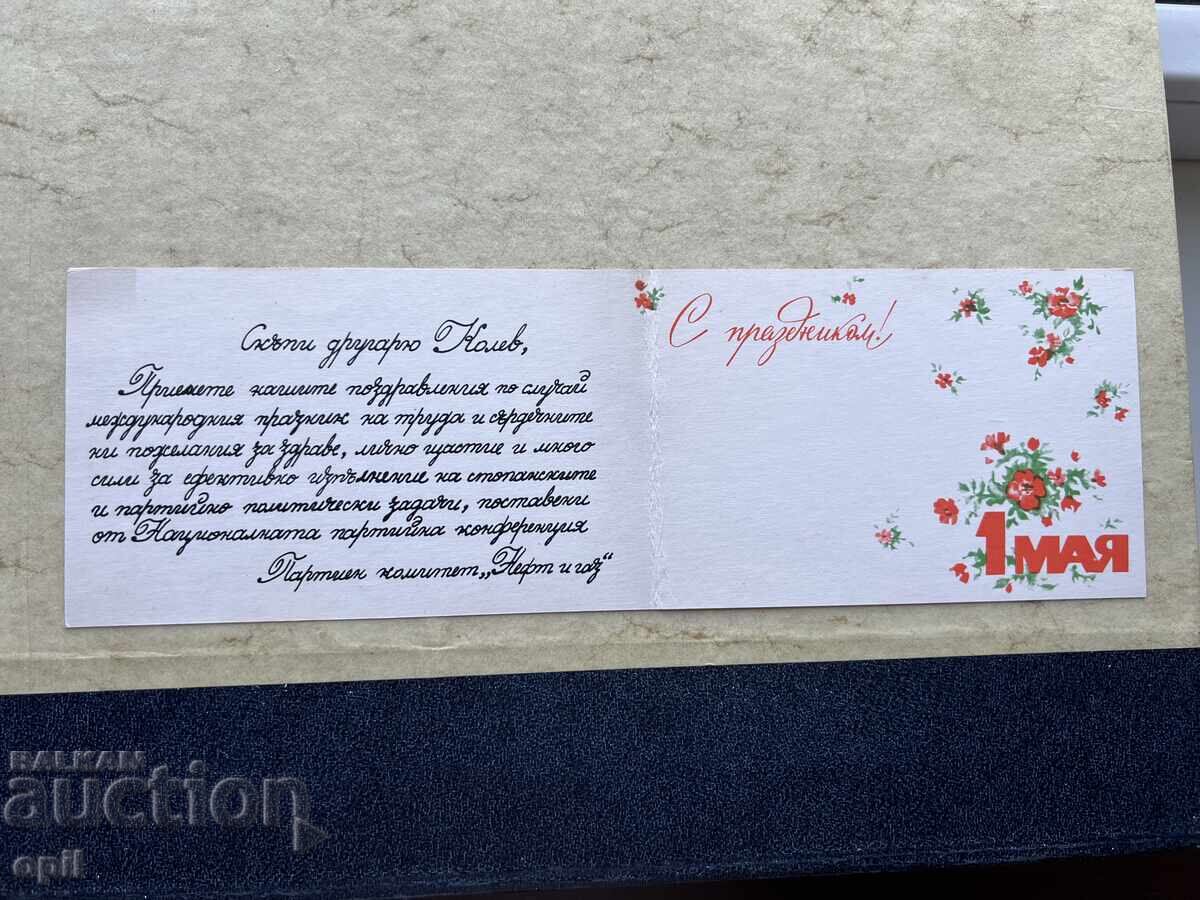 Скъпи другарю Колев,
Приемете нашите поздравления по случай
международния празник на труда и сърдечните
ни пожелания за здраве, лично щастие и много
сили за ефективно изпълнение на стопанските
и партийно политически задачи, поставени
от Националната партийна конференция
Партиен комитет „Нефт и газ“
С праздником!
1 МАЯ
BALKAN
auction
opil